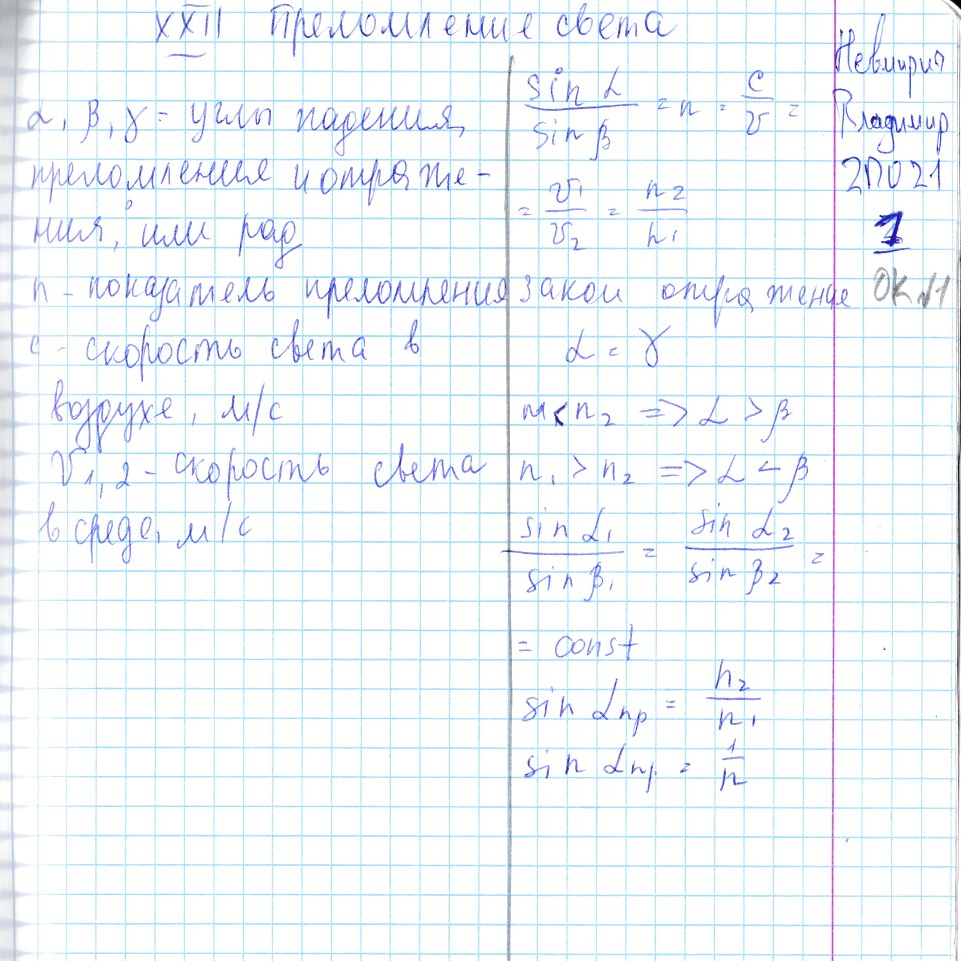 XXII Преломление света
α, β, γ - углы падения,
преломления и отраже-
ния, ° или рад
n - показатель преломления
c - скорость света в
воздухе, м/с
V1,2 - скорость света
в среде, м/с
sin α / sin β = n = c / v =
= v1 / v2 = n2 / n1
закон отражения
α = γ
n1 < n2 => α > β
n1 > n2 => α < β
sin α1 / sin β1 = sin α2 / sin β2 =
= const
sin αпр = n2 / n1
sin αпр = 1 / n
Владимир
2П021
1
ОК №1